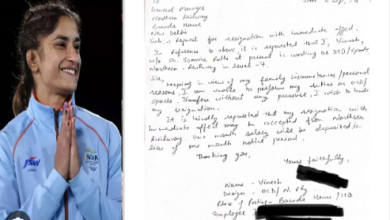 General Manager
Northern Railway
Baroda House
New Delhi
Sub:- request for resignation with immediate effect.
In reference to above, it is requested that I, Vinesh,
W/o Sh. Somvir Rathi at present is working as OSD/Sports
Northern Railway in Level -7.
Sir,
Keeping in view of my family circumstances/personal
reasons, I am unable to perform my duties as OSD/
Sports. Therefore without any pressure, I wish to tender
my resignation.
It is kindly requested that my resignation with
immediate effect may be accepted from Northern
Railway. One month salary will be deposited in
lieu of one month notice period.
Thanking you,
Yours faithfully,
Name - Vinesh
Design - OSD/N. Rly
Place of Posting - Baroda House/
Employee
JSW
INDIA